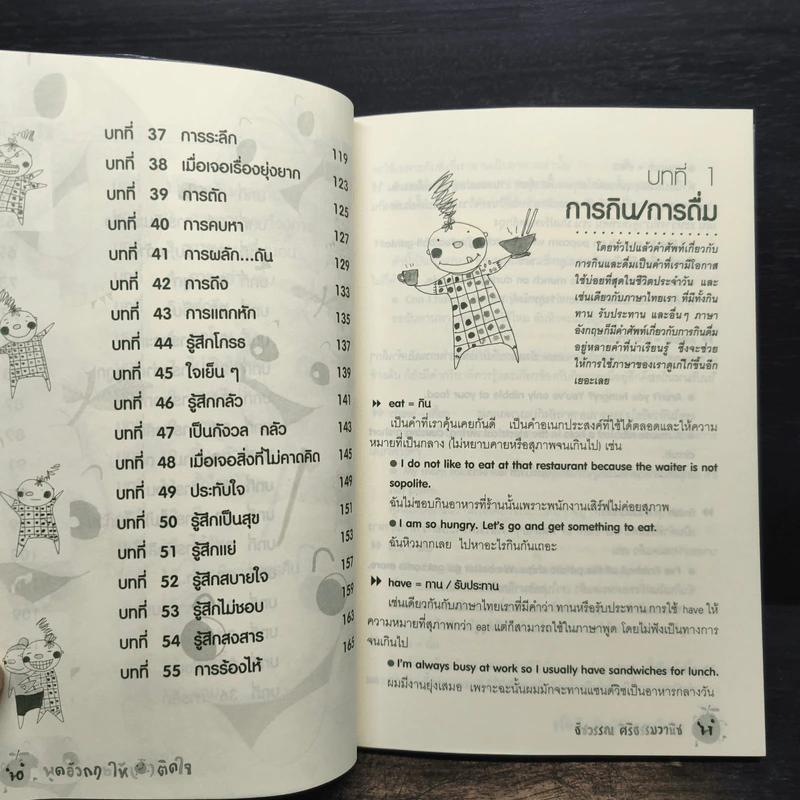 บทที่ 37 การระลึก 119
บทที่ 38 เมื่อเจอเรื่องยุ่งยาก 123
บทที่ 39 การตัด 125
บทที่ 40 การคบหา 127
บทที่ 41 การผลัก...ดัน 129
บทที่ 42 การดึง 133
บทที่ 43 การแตกหัก 135
บทที่ 44 รู้สึกโกรธ 137
บทที่ 45 ใจเย็น ๆ 139
บทที่ 46 รู้สึกกลัว 141
บทที่ 47 เป็นกังวล กลัว 143
บทที่ 48 เมื่อเจอสิ่งที่ไม่คาดคิด 145
บทที่ 49 ประทับใจ 149
บทที่ 50 รู้สึกเป็นสุข 151
บทที่ 51 รู้สึกแย่ 153
บทที่ 52 รู้สึกสบายใจ 157
บทที่ 53 รู้สึกไม่ชอบ 159
บทที่ 54 รู้สึกสงสาร 163
บทที่ 55 การร้องไห้ 165
พูดอังกฤษ ให้ ติดใจ
บทที่ 1
การกิน/การดื่ม
โดยทั่วไปแล้วคำศัพท์เกี่ยวกับ
การกินและดื่มเป็นคำที่เรามีโอกาส
ใช้บ่อยที่สุดในชีวิตประจำวัน และ
เช่นเดียวกับภาษาไทยเรา ที่มีทั้งกิน
ทาน รับประทาน และอื่นๆ ภาษา
อังกฤษก็มีคำศัพท์เกี่ยวกับการกินดื่ม
อยู่หลายคำที่น่าเรียนรู้ ซึ่งจะช่วย
ให้การใช้ภาษาของเราดูเก๋ไก๋ขึ้นอีก
เยอะเลย
eat = กิน
เป็นคำที่เราคุ้นเคยกันดี เป็นคำอเนกประสงค์ที่ใช้ได้ตลอดและให้ความ
หมายที่เป็นกลาง (ไม่หยาบคายหรือสุภาพจนเกินไป) เช่น
● I do not like to eat at that restaurant because the waiter is not
sopolite.
ฉันไม่ชอบกินอาหารที่ร้านนั้นเพราะพนักงานเสิร์ฟไม่ค่อยสุภาพ
● I am so hungry. Let's go and get something to eat.
ฉันหิวมากเลย ไปหาอะไรกินกันเถอะ
have = ทาน / รับประทาน
เช่นเดียวกันกับภาษาไทยเราที่มีคำว่า ทานหรือรับประทาน การใช้ have ให้
ความหมายที่สุภาพกว่า eat แต่ก็สามารถใช้ในภาษาพูด โดยไม่ฟังเป็นทางการ
จนเกินไป
● I'm always busy at work so I usually have sandwiches for lunch.
ผมมีงานยุ่งเสมอ เพราะฉะนั้นผมมักจะทานแซนด์วิชเป็นอาหารกลางวัน
ธัชวรรณ ศริธรมวานิช